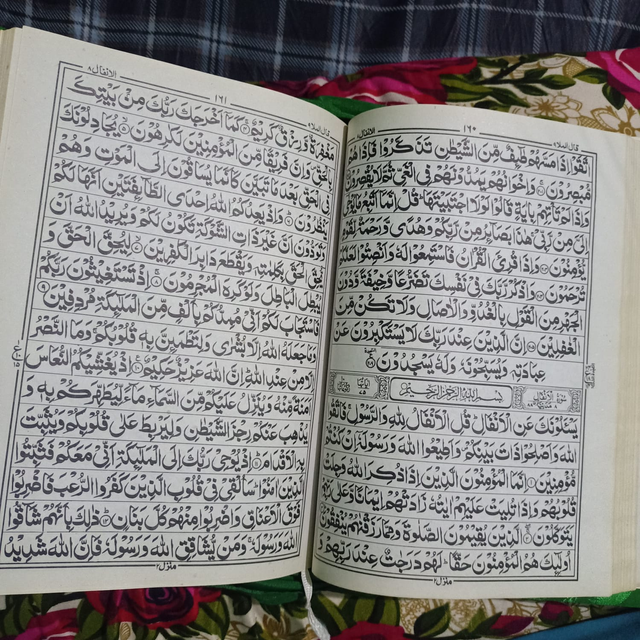 قال الملا ٩
١٦٠
الانفال ٨
اتَّقَوْا اِذَا مَسَّهُمْ طٰٓئِفٌ مِّنَ الشَّيْطٰنِ تَذَكَّرُوْا فَاِذَا هُمْ
مُّبْصِرُوْنَ وَاِخْوَانُهُمْ يَمُدُّوْنَهُمْ فِی الْغَیِّ ثُمَّ لَا يُقْصِرُوْنَ
وَاِذَا لَمْ تَاْتِهِمْ بِاٰيَةٍ قَالُوْا لَوْلَا اجْتَبَيْتَهَا قُلْ اِنَّمَاۤ اَتَّبِعُ مَا يُوْحٰۤی
اِلَیَّ مِنْ رَّبِّیْ هٰذَا بَصَآئِرُ مِنْ رَّبِّكُمْ وَهُدًی وَّرَحْمَةٌ لِّقَوْمٍ
يُّؤْمِنُوْنَ وَاِذَا قُرِئَ الْقُرْاٰنُ فَاسْتَمِعُوْا لَهٗ وَاَنْصِتُوْا لَعَلَّكُمْ
تُرْحَمُوْنَ وَاذْكُرْ رَّبَّكَ فِیْ نَفْسِكَ تَضَرُّعًا وَّخِيْفَةً وَّدُوْنَ
الْجَهْرِ مِنَ الْقَوْلِ بِالْغُدُوِّ وَالْاٰصَالِ وَلَا تَكُنْ مِّنَ
الْغٰفِلِيْنَ اِنَّ الَّذِيْنَ عِنْدَ رَبِّكَ لَا يَسْتَكْبِرُوْنَ عَنْ
عِبَادَتِهٖ وَيُسَبِّحُوْنَهٗ وَلَهٗ يَسْجُدُوْنَ
بِسْمِ اللّٰهِ الرَّحْمٰنِ الرَّحِيْمِ
يَسْـَٔلُوْنَكَ عَنِ الْاَنْفَالِ قُلِ الْاَنْفَالُ لِلّٰهِ وَالرَّسُوْلِ فَاتَّقُوا
اللّٰهَ وَاَصْلِحُوْا ذَاتَ بَيْنِكُمْ وَاَطِيْعُوا اللّٰهَ وَرَسُوْلَهٗۤ اِنْ كُنْتُمْ
مُّؤْمِنِيْنَ اِنَّمَا الْمُؤْمِنُوْنَ الَّذِيْنَ اِذَا ذُكِرَ اللّٰهُ وَجِلَتْ
قُلُوْبُهُمْ وَاِذَا تُلِيَتْ عَلَيْهِمْ اٰيٰتُهٗ زَادَتْهُمْ اِيْمَانًا وَّعَلٰی رَبِّهِمْ
يَتَوَكَّلُوْنَ الَّذِيْنَ يُقِيْمُوْنَ الصَّلٰوةَ وَمِمَّا رَزَقْنٰهُمْ يُنْفِقُوْنَ
اُولٰٓئِكَ هُمُ الْمُؤْمِنُوْنَ حَقًّا لَهُمْ دَرَجٰتٌ عِنْدَ رَبِّهِمْ وَ
منزل ٢
قال الملا ٩
١٦١
الانفال ٨
مَغْفِرَةٌ وَّرِزْقٌ كَرِيْمٌ كَمَاۤ اَخْرَجَكَ رَبُّكَ مِنْۢ بَيْتِكَ
بِالْحَقِّ وَاِنَّ فَرِيْقًا مِّنَ الْمُؤْمِنِيْنَ لَكٰرِهُوْنَ يُجَادِلُوْنَكَ
فِی الْحَقِّ بَعْدَ مَا تَبَيَّنَ كَاَنَّمَا يُسَاقُوْنَ اِلَی الْمَوْتِ وَهُمْ
يَنْظُرُوْنَ وَاِذْ يَعِدُكُمُ اللّٰهُ اِحْدَی الطَّآئِفَتَيْنِ اَنَّهَا لَكُمْ
وَتَوَدُّوْنَ اَنَّ غَيْرَ ذَاتِ الشَّوْكَةِ تَكُوْنُ لَكُمْ وَيُرِيْدُ اللّٰهُ اَنْ
يُّحِقَّ الْحَقَّ بِكَلِمٰتِهٖ وَيَقْطَعَ دَابِرَ الْكٰفِرِيْنَ لِيُحِقَّ الْحَقَّ وَ
يُبْطِلَ الْبَاطِلَ وَلَوْ كَرِهَ الْمُجْرِمُوْنَ اِذْ تَسْتَغِيْثُوْنَ رَبَّكُمْ
فَاسْتَجَابَ لَكُمْ اَنِّیْ مُمِدُّكُمْ بِاَلْفٍ مِّنَ الْمَلٰٓئِكَةِ مُرْدِفِيْنَ
وَمَا جَعَلَهُ اللّٰهُ اِلَّا بُشْرٰی وَلِتَطْمَئِنَّ بِهٖ قُلُوْبُكُمْ وَمَا النَّصْرُ
اِلَّا مِنْ عِنْدِ اللّٰهِ اِنَّ اللّٰهَ عَزِيْزٌ حَكِيْمٌ اِذْ يُغَشِّيْكُمُ النُّعَاسَ
اَمَنَةً مِّنْهُ وَيُنَزِّلُ عَلَيْكُمْ مِّنَ السَّمَآءِ مَآءً لِّيُطَهِّرَكُمْ بِهٖ وَ
يُذْهِبَ عَنْكُمْ رِجْزَ الشَّيْطٰنِ وَلِيَرْبِطَ عَلٰی قُلُوْبِكُمْ وَيُثَبِّتَ
بِهِ الْاَقْدَامَ اِذْ يُوْحِیْ رَبُّكَ اِلَی الْمَلٰٓئِكَةِ اَنِّیْ مَعَكُمْ فَثَبِّتُوا
الَّذِيْنَ اٰمَنُوْا سَاُلْقِیْ فِیْ قُلُوْبِ الَّذِيْنَ كَفَرُوا الرُّعْبَ فَاضْرِبُوْا
فَوْقَ الْاَعْنَاقِ وَاضْرِبُوْا مِنْهُمْ كُلَّ بَنَانٍ ذٰلِكَ بِاَنَّهُمْ شَآقُّوا
اللّٰهَ وَرَسُوْلَهٗ وَمَنْ يُّشَاقِقِ اللّٰهَ وَرَسُوْلَهٗ فَاِنَّ اللّٰهَ شَدِيْدُ
منزل ٢